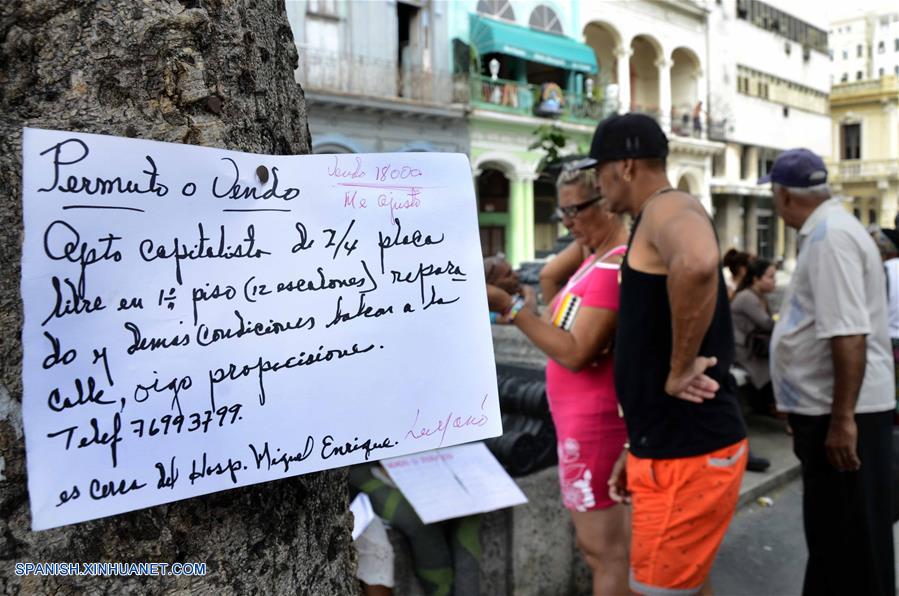 Permuto o Vendo
Vendo 18000
Me ajusto
Apto capitalista de 2/4 placa
libre en 1er piso (12 escalones) repara
do y demás condiciones balcon a la
calle, oigo propocisione.
Telef 76993799.
es cerca del Hosp. Miguel Enrique.
SPANISH.XINHUANET.COM